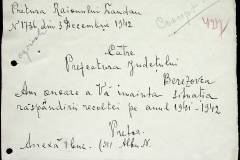 Pretura Raionului Landau
N° 1736 din 3 Decembrie 1942
Către
Prefectura Judetului
Berezovca
Am onoare a Vă inainta situatia
răspândirii recoltei pe anul 1941-1942
Pretor.
Anexă 1 buc. (ss) Albu N.